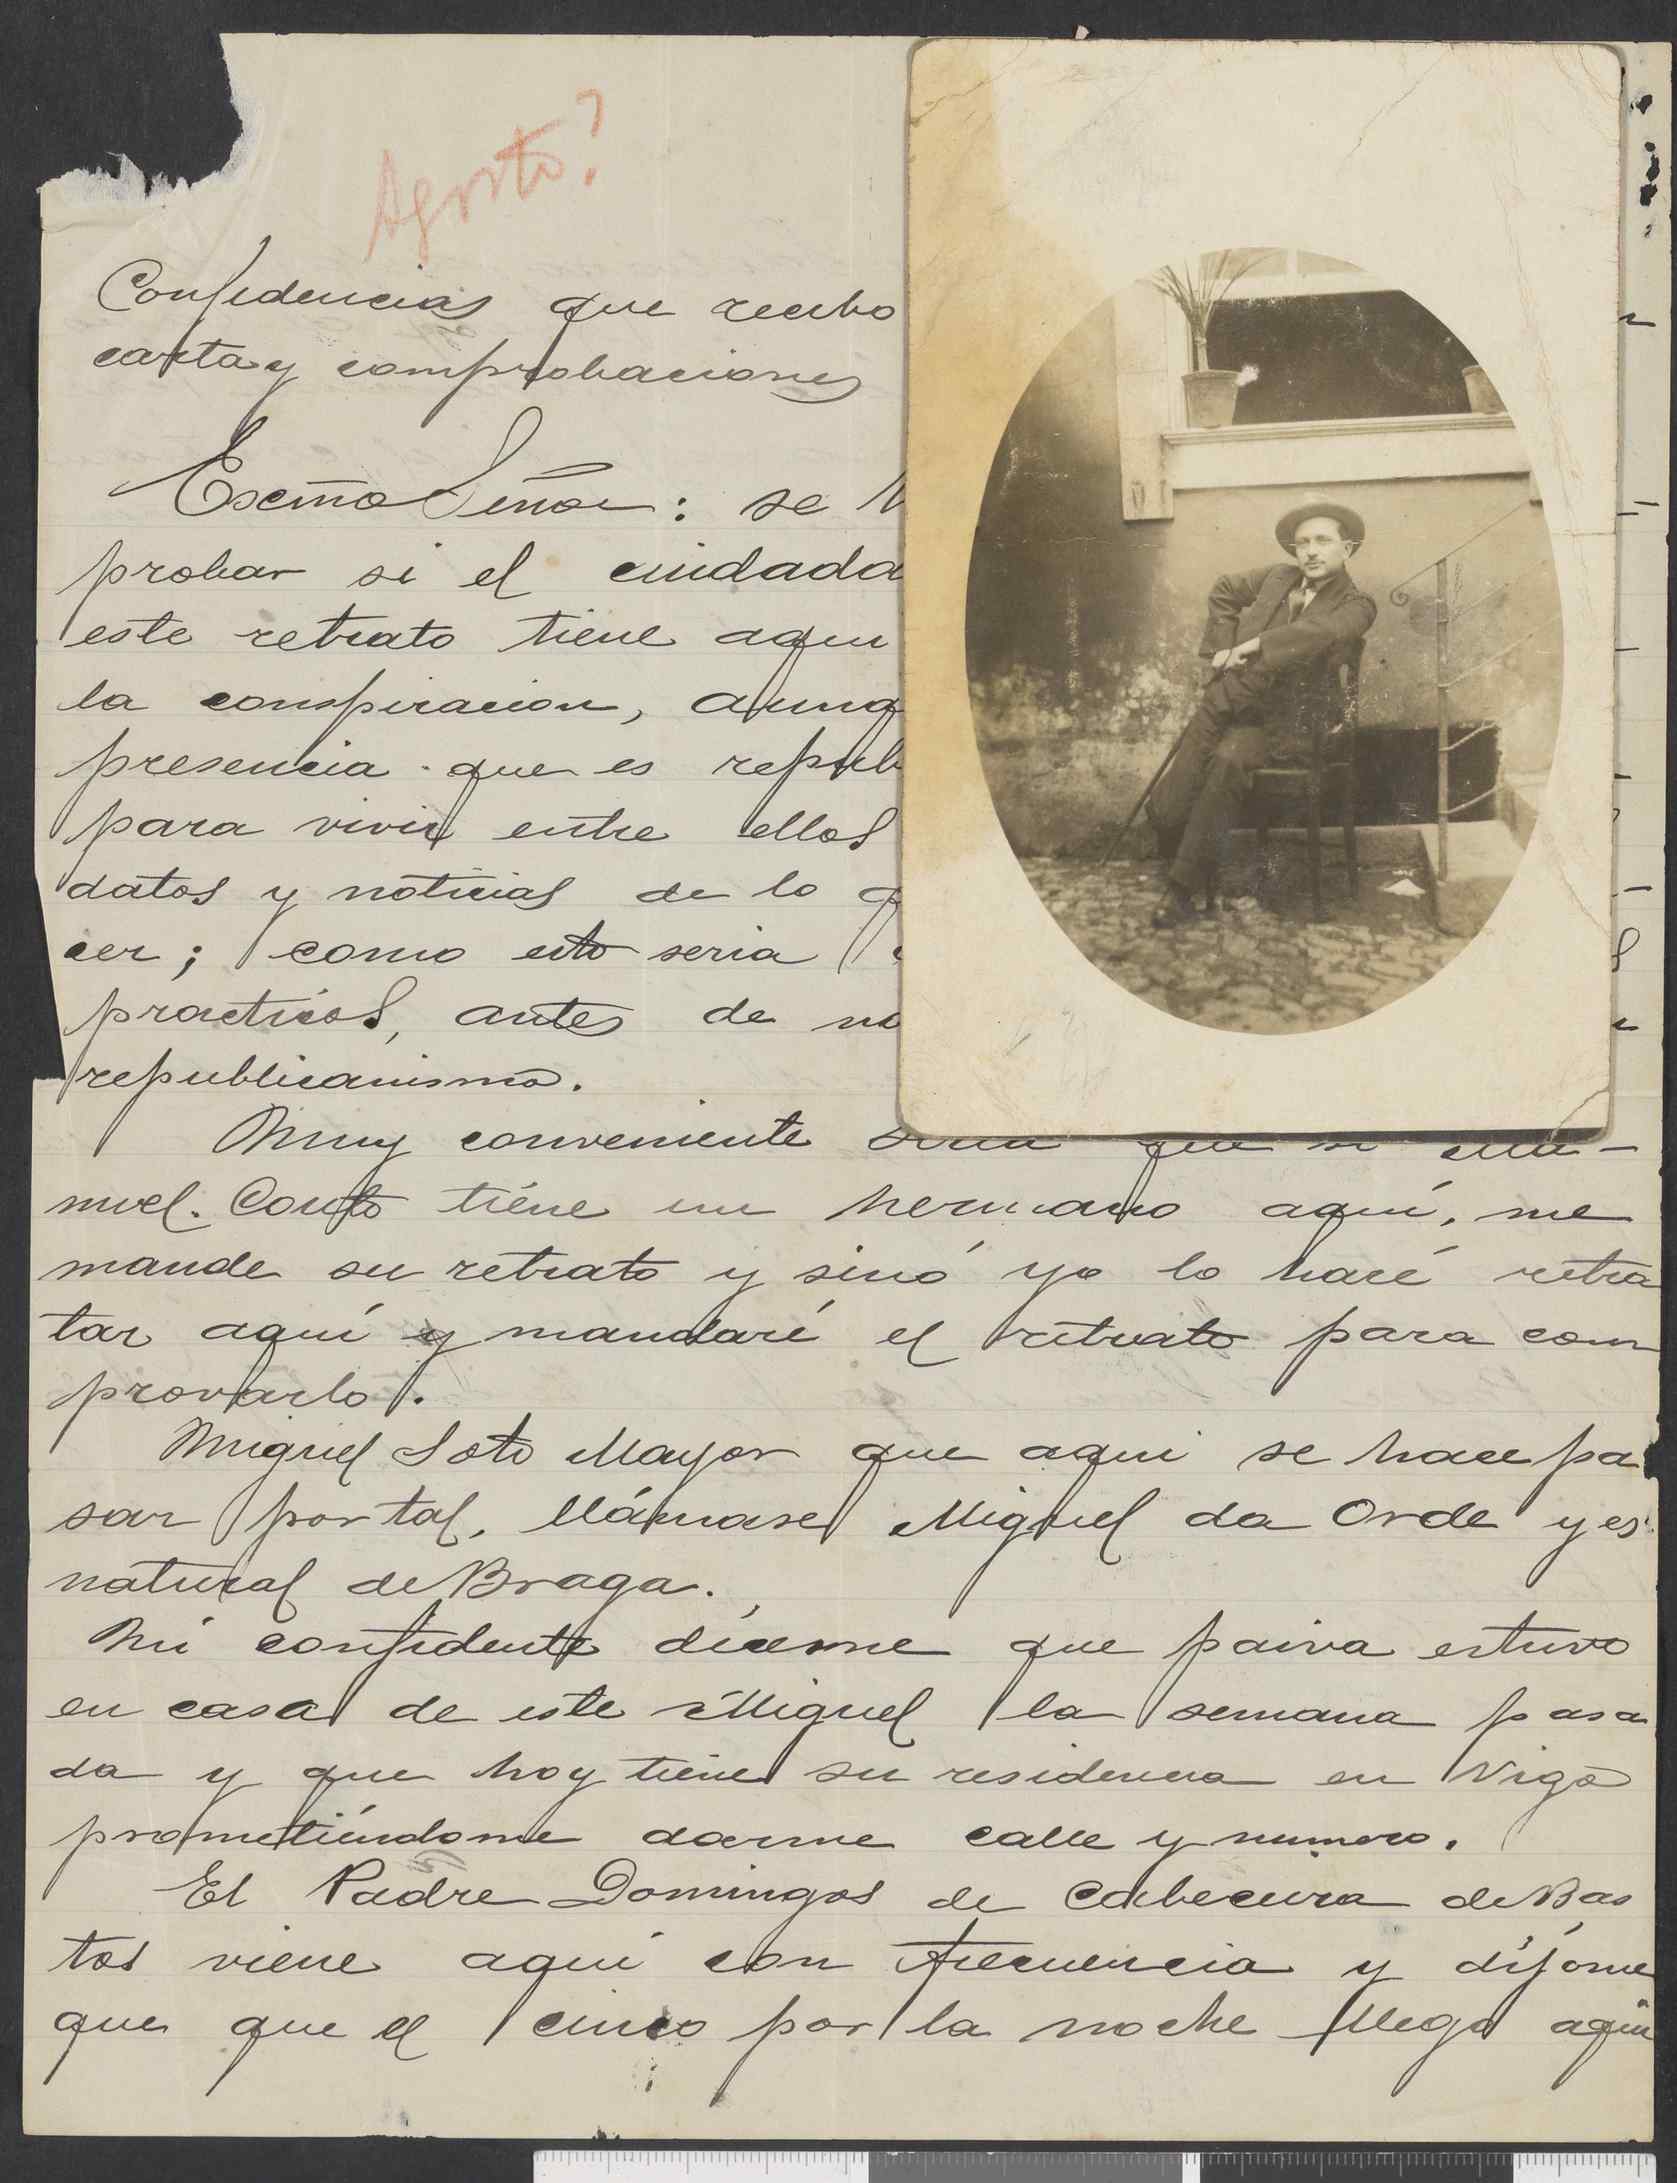 Agosto?
Confidencias que recibo
carta y comprobaciones
Excmo Señor: se
probar si el ciudada
este retrato tiene aqui
la conspiracion, aunq
presencia que es repub
para vivir entre ellos
datos y noticias de lo q
cer; como esto seria
practicos, antes de
republicanismo.
Muy conveniente seria que si Ma-
nuel. Couto tiéne un hermano aquí, me
mande su retrato y sinó yo lo haré retra
tar aquí y mandaré el retrato para com
provarlo.
Miguel Soto Mayor que aqui se hace pa
sar por tal, llámase Miguel da Orde y es
natural de Braga.
Mi confidente díceme que paiva estuvo
en casa de este Miguel la semana pasa
da y que hoy tiene su residencia en Vigo
prometiéndome darme calle y numero.
El Padre Domingos de Cabeceira de Bas
tos viene aquí con frecuencia y díjome
que que el cinco por la noche llega aqui